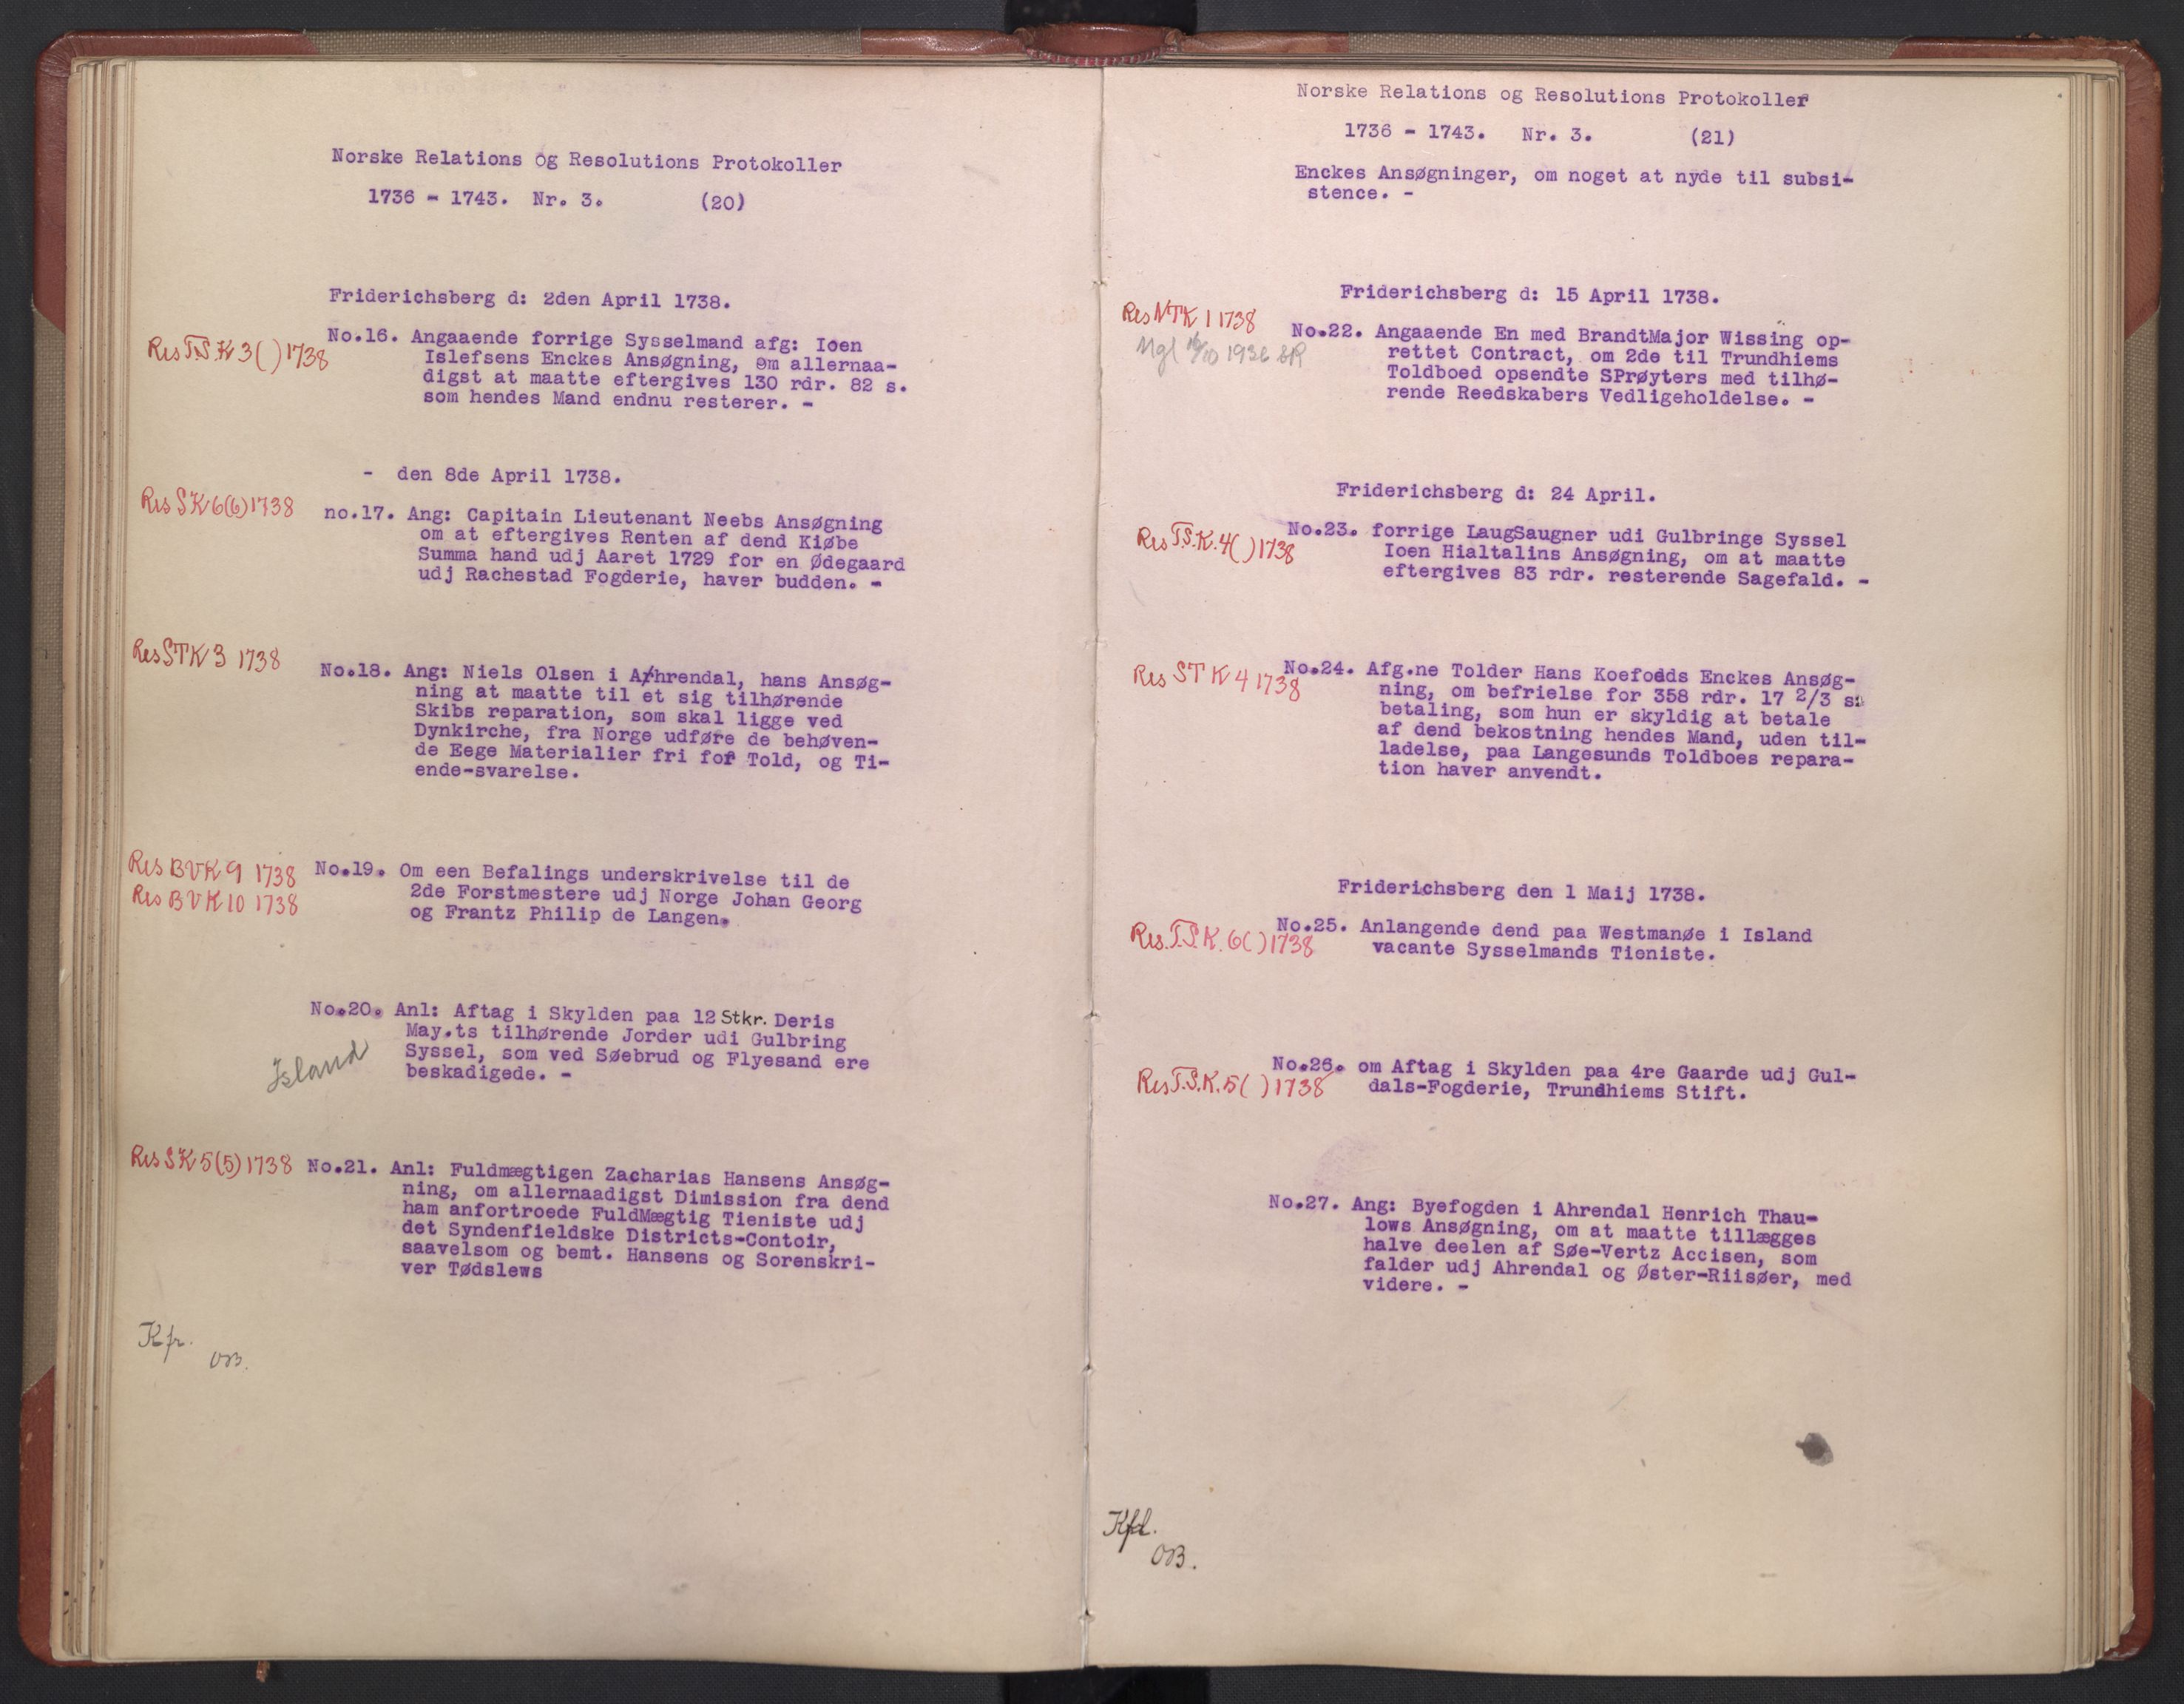 Norske Relations og Resolutions Protokoller
1736 - 1743. Nr. 3. (20)
Friderichsberg d: 2den April 1738.
Res T.S.K 3( ) 1738
No.16. Angaaende forrige Sysselmand afg: Ioen
Islefsens Enckes Ansøgning, om allernaa-
digst at maatte eftergives 130 rdr. 82 s.
som hendes Mand endnu resterer. -
- den 8de April 1738.
Res SK 6(6) 1738
no.17. Ang: Capitain Lieutenant Neebs Ansøgning
om at eftergives Renten af dend Kiøbe
Summa hand udj Aaret 1729 for en Ødegaard
udj Rachestad Fogderie, haver budden. -
Res STK 3 1738
No.18. Ang: Niels Olsen i Ahrendal, hans Ansøg-
ning at maatte til et sig tilhørende
Skibs reparation, som skal ligge ved
Dynkirche, fra Norge udføre de behøven-
de Eege Materialier fri for Told, og Ti-
ende-svarelse.
Res BVK 9 1738
Res BVK 10 1738
No.19. Om een Befalings underskrivelse til de
2de Forstmestere udj Norge Johan Georg
og Frantz Philip de Langen.
No.20. Anl: Aftag i Skylden paa 12 Stkr. Deris
May.ts tilhørende Jorder udi Gulbring
Syssel, som ved Søebrud og Flyesand ere
beskadigede. -
Island
Res SK 5(5) 1738
No.21. Anl: Fuldmægtigen Zacharias Hansens Ansøg-
ning, om allernaadigst Dimission fra dend
ham anfortroede FuldMægtig Tieniste udj
det Syndenfieldske Districts-Contoir,
saavelsom og bemt. Hansens og Sorenskri-
ver Tødslews
Kfr.
OB.
Norske Relations og Resolutions Protokoller
1736 - 1743. Nr. 3. (21)
Enckes Ansøgninger, om noget at nyde til subsi-
stence. -
Friderichsberg d: 15 April 1738.
Res NTK 1 1738
Mgl 16/10 1936 SR
No.22. Angaaende En med BrandtMajor Wissing op-
rettet Contract, om 2de til Trundhiems
Toldboed opsendte SPrøyters med tilhø-
rende Reedskabers Vedligeholdelse. -
Friderichsberg d: 24 April.
Res T.S.K. 4( ) 1738
No.23. forrige LaugSaugner udi Gulbringe Syssel
Ioen Hialtalins Ansøgning, om at maatte
eftergives 83 rdr. resterende Sagefald. -
Res STK 4 1738
No.24. Afg.ne Tolder Hans Koefods Enckes Ansøg-
ning, om befrielse for 358 rdr. 17 2/3 s:
betaling, som hun er skyldig at betale
af dend bekostning hendes Mand, uden til-
ladelse, paa Langesunds Toldboes repara-
tion haver anvendt.
Friderichsberg den 1 Maij 1738.
Res. T.S.K. 6( ) 1738
No.25. Anlangende dend paa Westmanøe i Island
vacante Sysselmands Tieniste.
Res T.S.K. 5( ) 1738
No.26. om Aftag i Skylden paa 4re Gaarde udj Gul-
dals-Fogderie, Trundhiems Stift.
No.27. Ang: Byefogden i Ahrendal Henrich Thau-
lows Ansøgning, om at maatte tillægges
halve deelen af Søe-Vertz Accisen, som
falder udj Ahrendal og Øster-Riisøer, med
videre. -
Kfd.
OB.